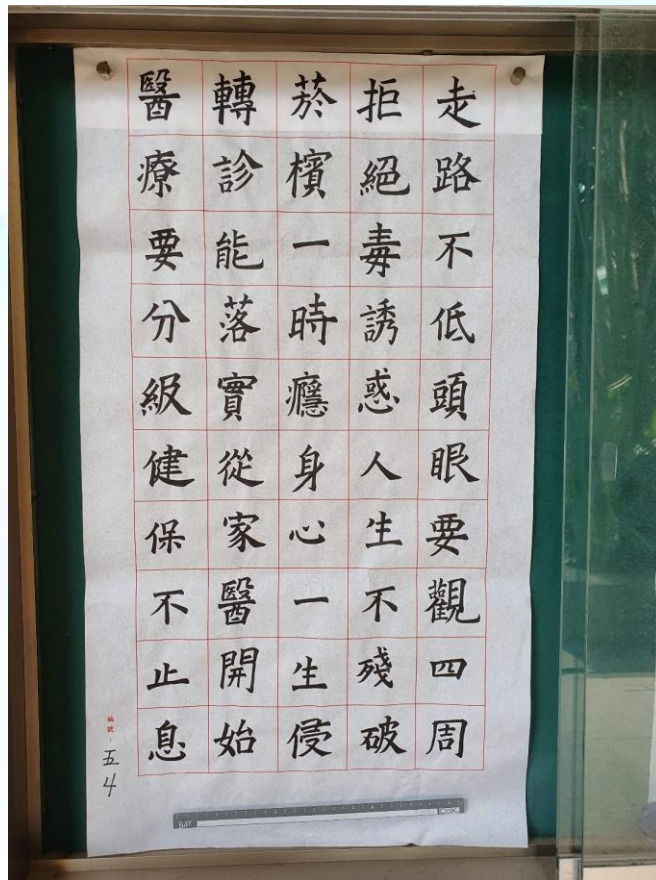 走路不低頭眼要觀四周
拒絕毒誘惑人生不殘破
菸檳一時癮身心一生侵
轉診能落實從家醫開始
醫療要分級健保不止息
編號：
五4